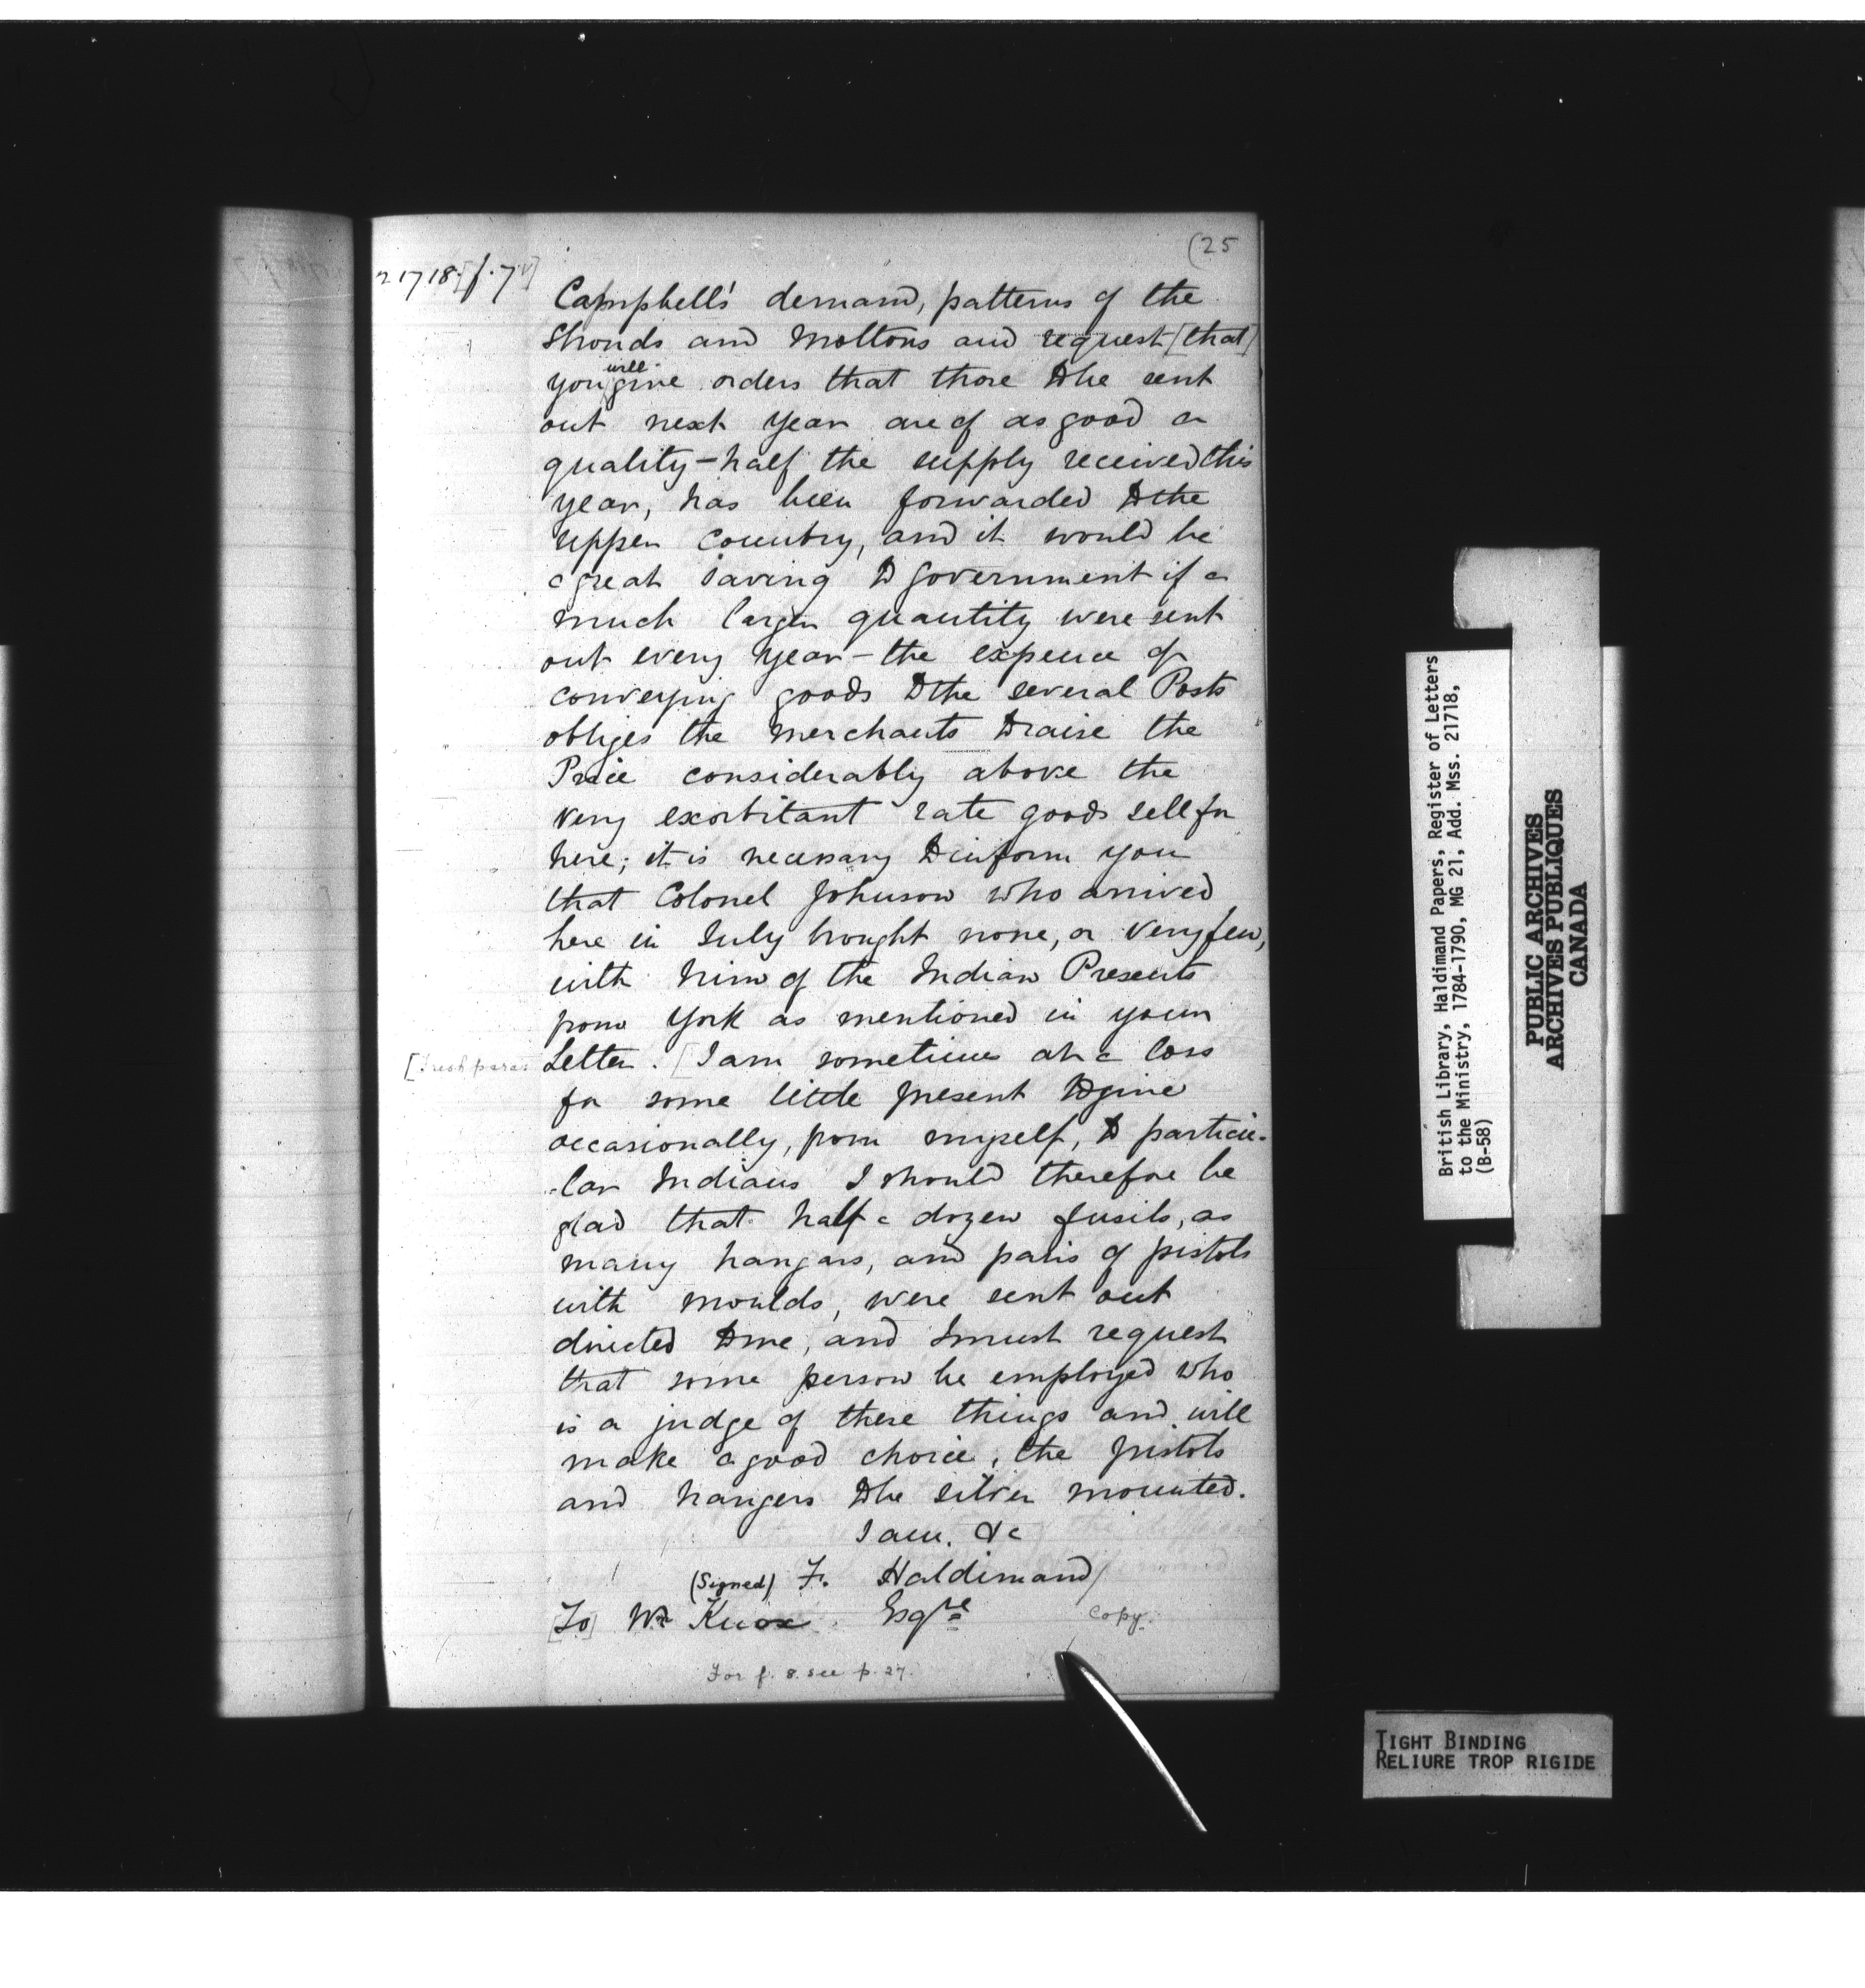 (25
21718 [f. 7v]
Campbell's demand, patterns of the
Shrouds and Moltons and request [that]
you will give orders that those to be sent
out next year are of as good a
quality – half the supply received this
year, has been forwarded to the
upper country, and it would be
a great saving to Government if a
much larger quantity were sent
out every year – the expence of
conveying goods to the several Posts
obliges the merchants to raise the
Price considerably above the
very exorbitant rate goods sell for
here; it is necessary to inform you
that Colonel Johnson who arrived
here in July brought none, or very few,
with him of the Indian Presents
from York as mentioned in your
[Fresh para: Letter. [I am sometimes at a loss
for some little present to give
occasionally, from myself, to particu-
-lar Indians I should therefore be
glad that half a dozen fusils, as
many hangars, and pairs of pistols
with moulds, were sent out
directed to me, and I must request
that some person be employed who
is a judge of these things and will
make a good choice, the pistols
and hangers to be silver mounted.
I am. &c
(Signed) F. Haldimand/
[To] Wm Knox Esqre copy.
For f. 8. see p. 27.
British Library, Haldimand Papers, Register of Letters
to the Ministry, 1784-1790, MG 21, Add. Mss. 21718,
(B-58)
PUBLIC ARCHIVES
ARCHIVES PUBLIQUES
CANADA
TIGHT BINDING
RELIURE TROP RIGIDE